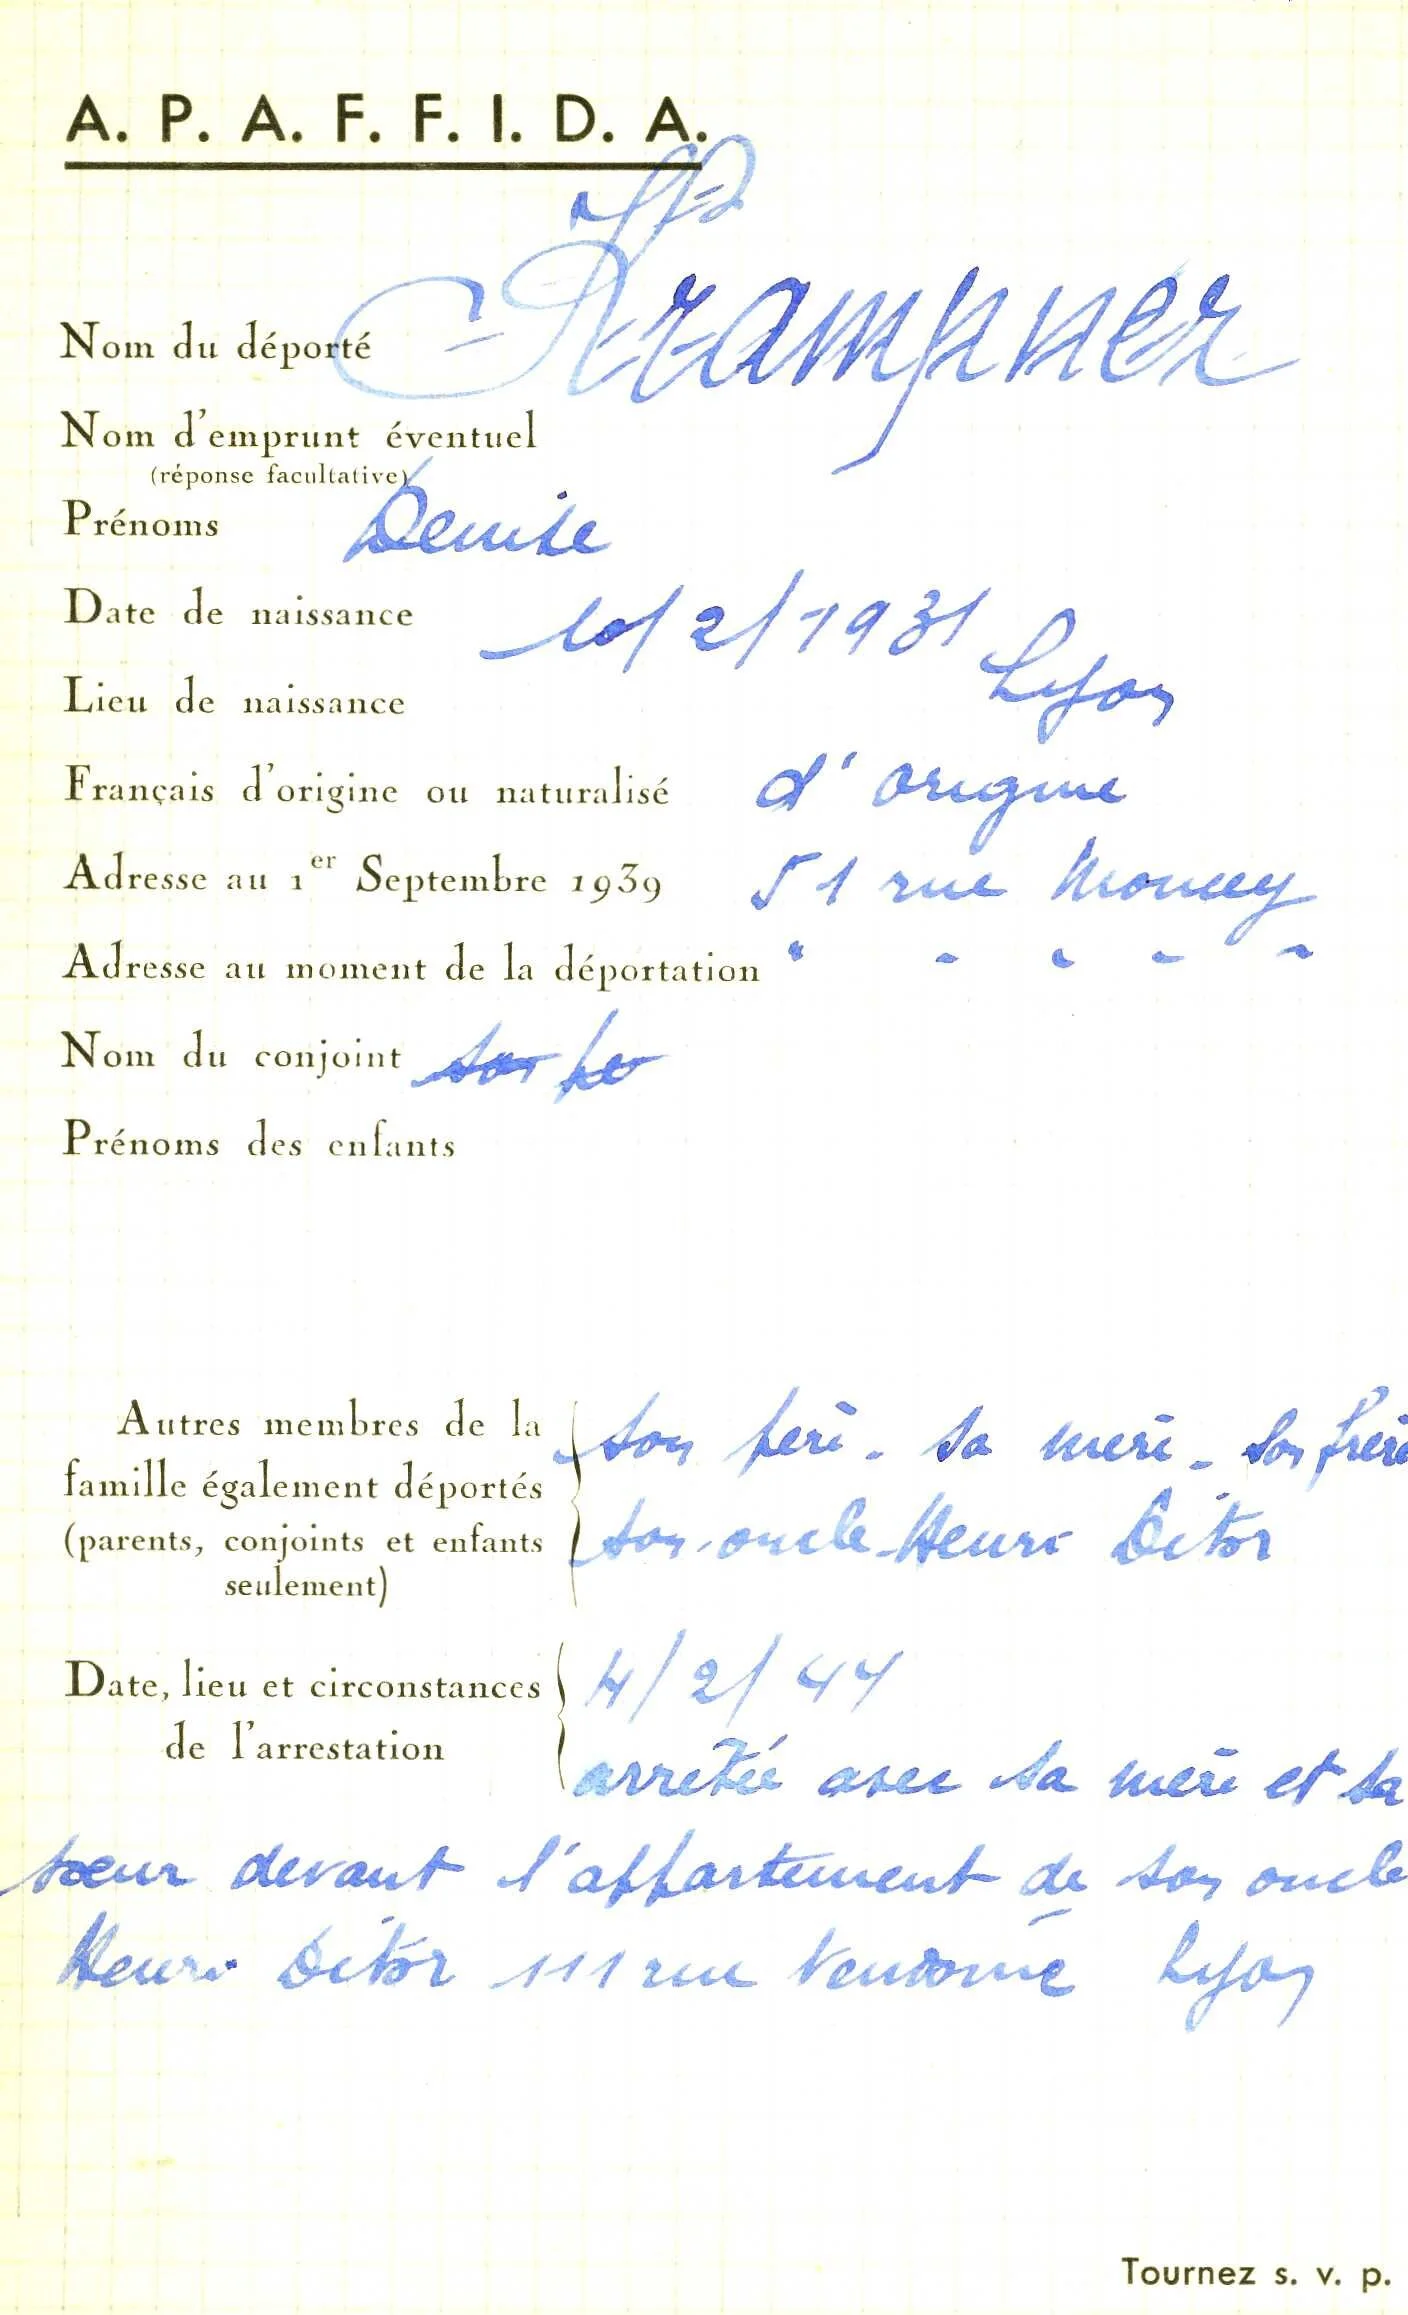 A. P. A. F. F. I. D. A.
Nom du déporté Krampner
Nom d'emprunt éventuel
(réponse facultative)
Prénoms Denise
Date de naissance 10/2/1931
Lieu de naissance Lyon
Français d'origine ou naturalisé d'origine
Adresse au 1er Septembre 1939 51 rue Moncey
Adresse au moment de la déportation " - - - -
Nom du conjoint
Prénoms des enfants
Autres membres de la son père - sa mère - son frère
famille également déportés
(parents, conjoints et enfants son oncle - Henri Ditor
seulement)
Date, lieu et circonstances 4/2/44
de l'arrestation
arretée avec sa mère et sa
sœur devant l'appartement de son oncle
Henri Ditor 111 rue Vendome Lyon
Tournez s. v. p.